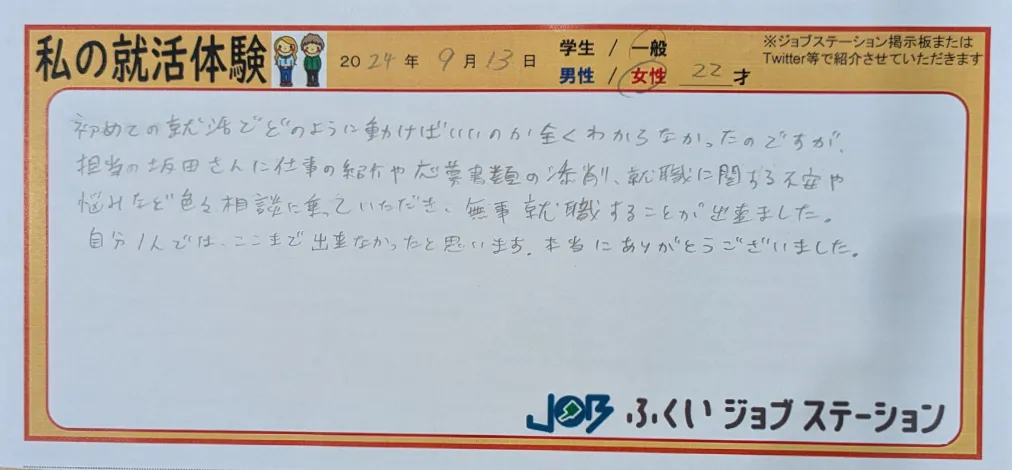 私の就活体験
2024年 9月 13日
学生 / 一般
男性 / 女性 22才
※ジョブステーション掲示板または
Twitter等で紹介させていただきます
初めての就活でどのように動けばいいのか全くわからなかったのですが、
担当の坂田さんに仕事の紹介や応募書類の添削、就職に関する不安や
悩みなど色々相談に乗っていただき、無事就職することが出来ました。
自分1人では、ここまで出来なかったと思います。本当にありがとうございました。
JOB ふくいジョブステーション